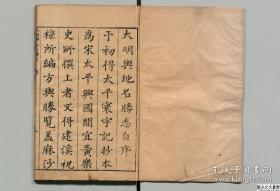 大明輿地名勝志自序
予初得太平寰宇記抄本
為宋太平興國間宜黃樂
史所撰上者又得建溪祝
穆所編方輿勝覽蓋麻沙